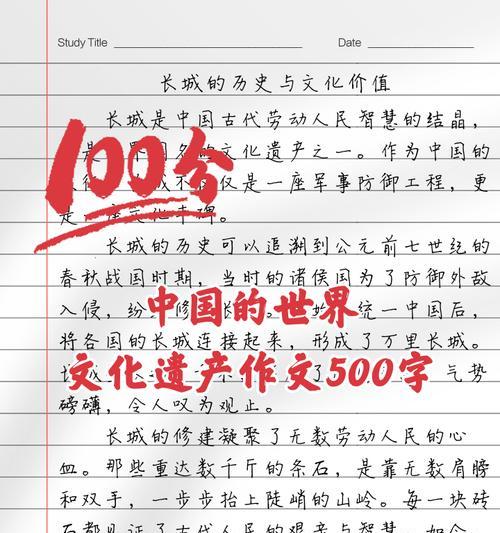 Study Title Date
长城的历史与文化价值
长城是中国古代劳动人民智慧的结晶,
是 界 名的文化遗产之一。作为中国的
城不仅仅是一座军事防御工程,更
是一座文化丰碑。
100分
长城的历史可以追溯到公元前七世纪的
春秋战国时期,当时的诸侯国为了防御外敌
入侵,纷 修 长 统一中国后,
中国的世界
将各国的长城连接起来,形成了万里长城。
文化遗产作文500字
气势
磅礴,令人叹为观止。
长城的修建凝聚了无数劳动人民的心
血。那些重达数千斤的条石,是靠无数肩膀
和双手,一步步抬上陡峭的山岭。每一块砖
石都见证了古代人民的艰辛与智慧。如今